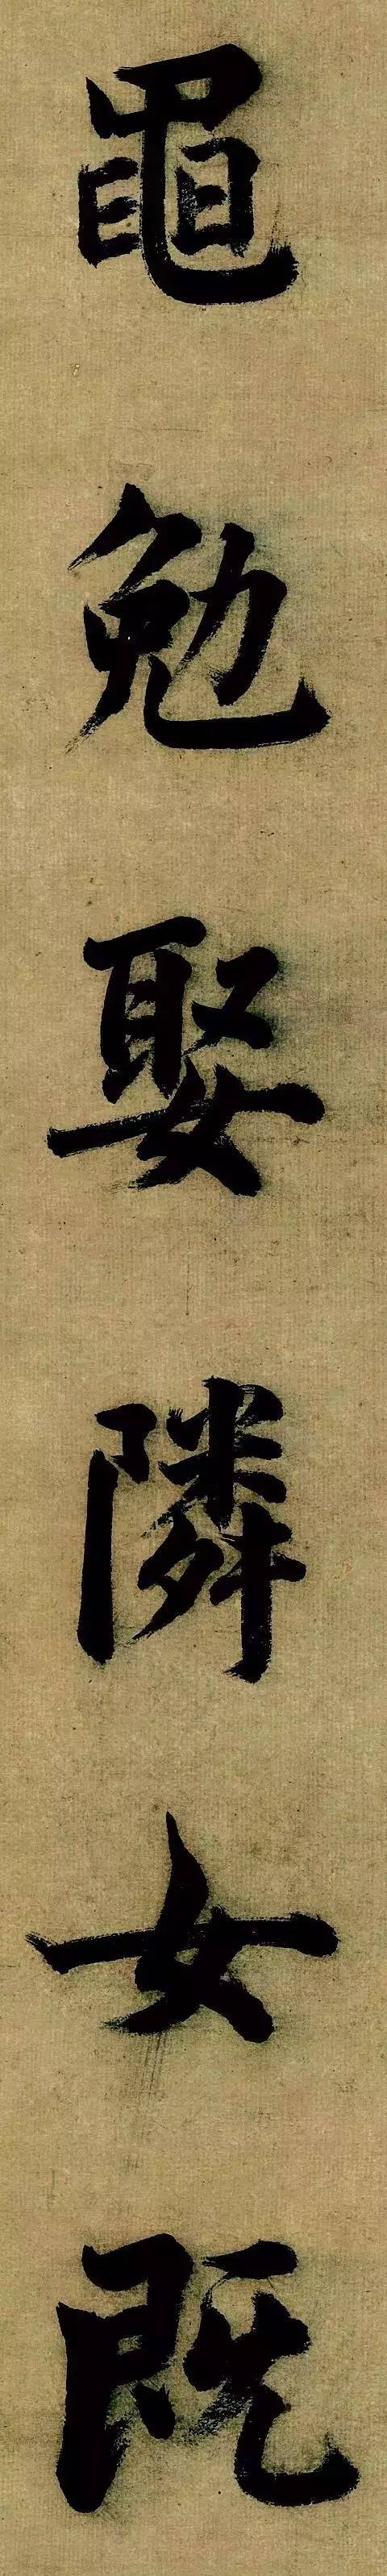 黽勉娶隣女既